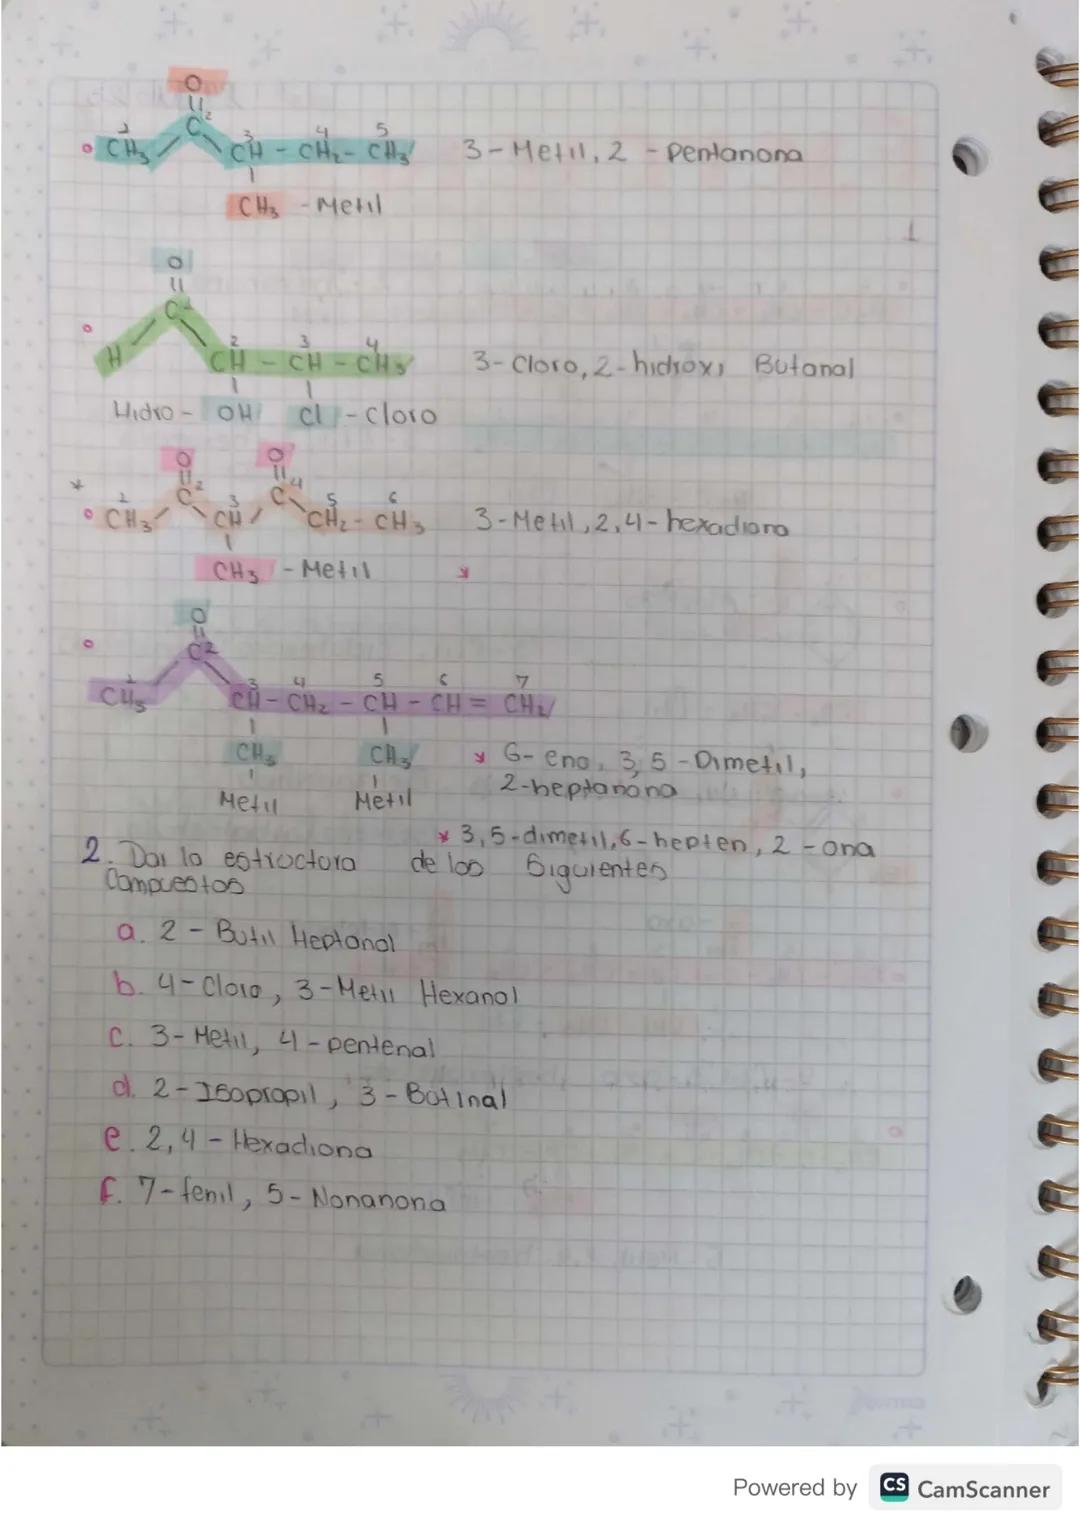 O
||
1 2 3 4 5
CH₃ C CH - CH₂ - CH₃ 3-Metil, 2 - pentanona
CH₃ - Metil
O
||
C1
2 3 4
H CH - CH - CH₃ 3-Cloro, 2-hidroxi Butanal
Hidro - OH Cl - cloro
O O
|| ||
* 1 2 3 4 5 6
CH₃ C CH C CH₂ - CH₃ 3-Metil, 2,4-hexadiona
CH₃ - Metil *
O
||
C2
1 3 4 5 6 7
CH₃ CH - CH₂ - CH - CH = CH₂
CH₃ CH₃ * 6-eno, 3,5-Dimetil,
Metil Metil 2-heptanona
* 3,5-dimetil, 6-hepten, 2-ona
2. Dar la estructura de los Siguientes
Compuestos
a. 2 - Butil Heptanal
b. 4-Cloro, 3-Metil Hexanal
c. 3-Metil, 4-pentenal
d. 2-Isopropil, 3-Butinal
e. 2,4 - Hexadiona
f. 7-fenil, 5-Nonanona
Powered by CS CamScanner